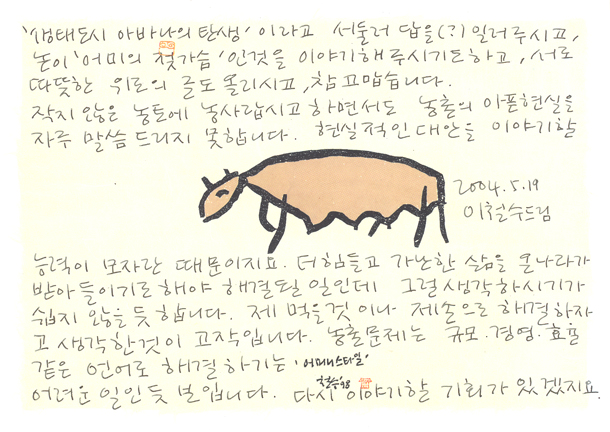 '생태도시 아바나의 탄생' 이라고 서둘러 답을(?) 일러주시고,
논이 '어미의 젖가슴' 인것을 이야기해주시기도하고, 서로
따뜻한 위로의 글도 올리시고, 참 고맙습니다.
작지 않은 농토에 농사랍시고 하면서도 농촌의 아픈현실을
자주 말씀 드리지 못합니다. 현실적인 대안을 이야기할
2004.5.19
이철수드림
능력이 모자란 때문이지요. 더 힘들고 가난한 삶을 온나라가
받아들이기로 해야 해결될 일인데 그럴 생각하시기가
쉽지 않을 듯 합니다. 제 먹을것 이나 제손으로 해결하자
고 생각한것이 고작입니다. 농촌문제는 규모. 경영. 효율
같은 언어로 해결하기는 '어미니스타일'
철수98
어려운 일인듯 보입니다. 다시 이야기할 기회가 있겠지요.